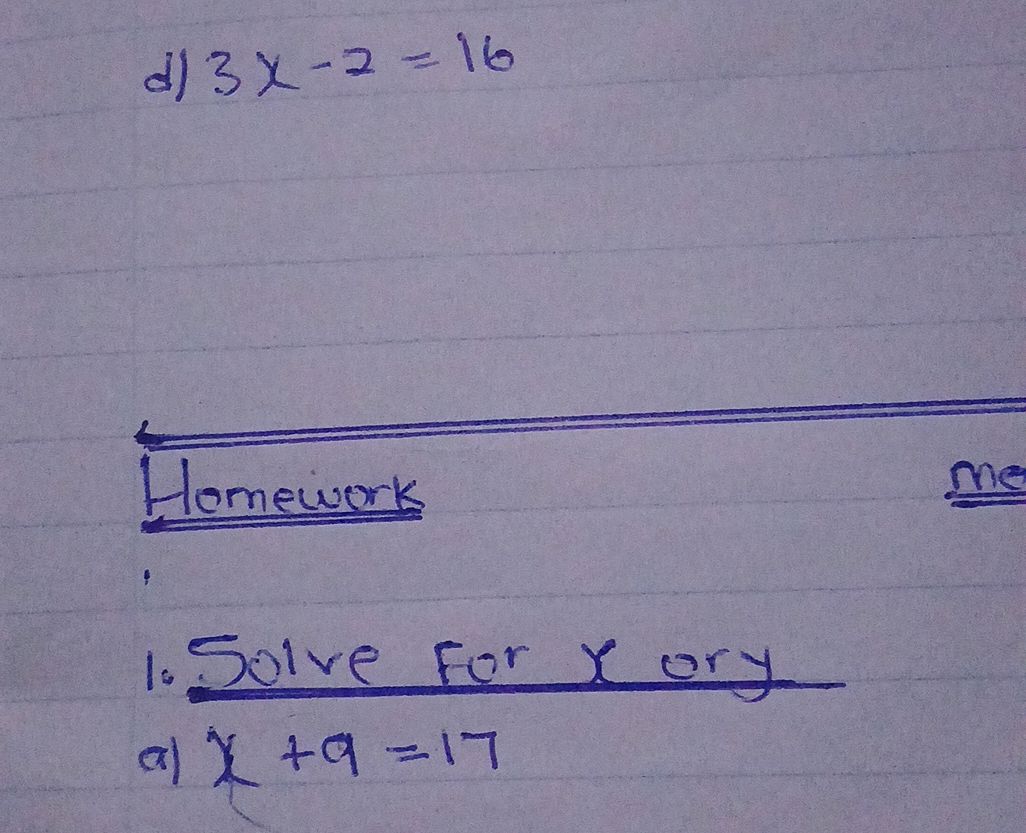 d) 3x - 2 = 16
Homework
1. Solve For x or y
a) x + 9 = 17